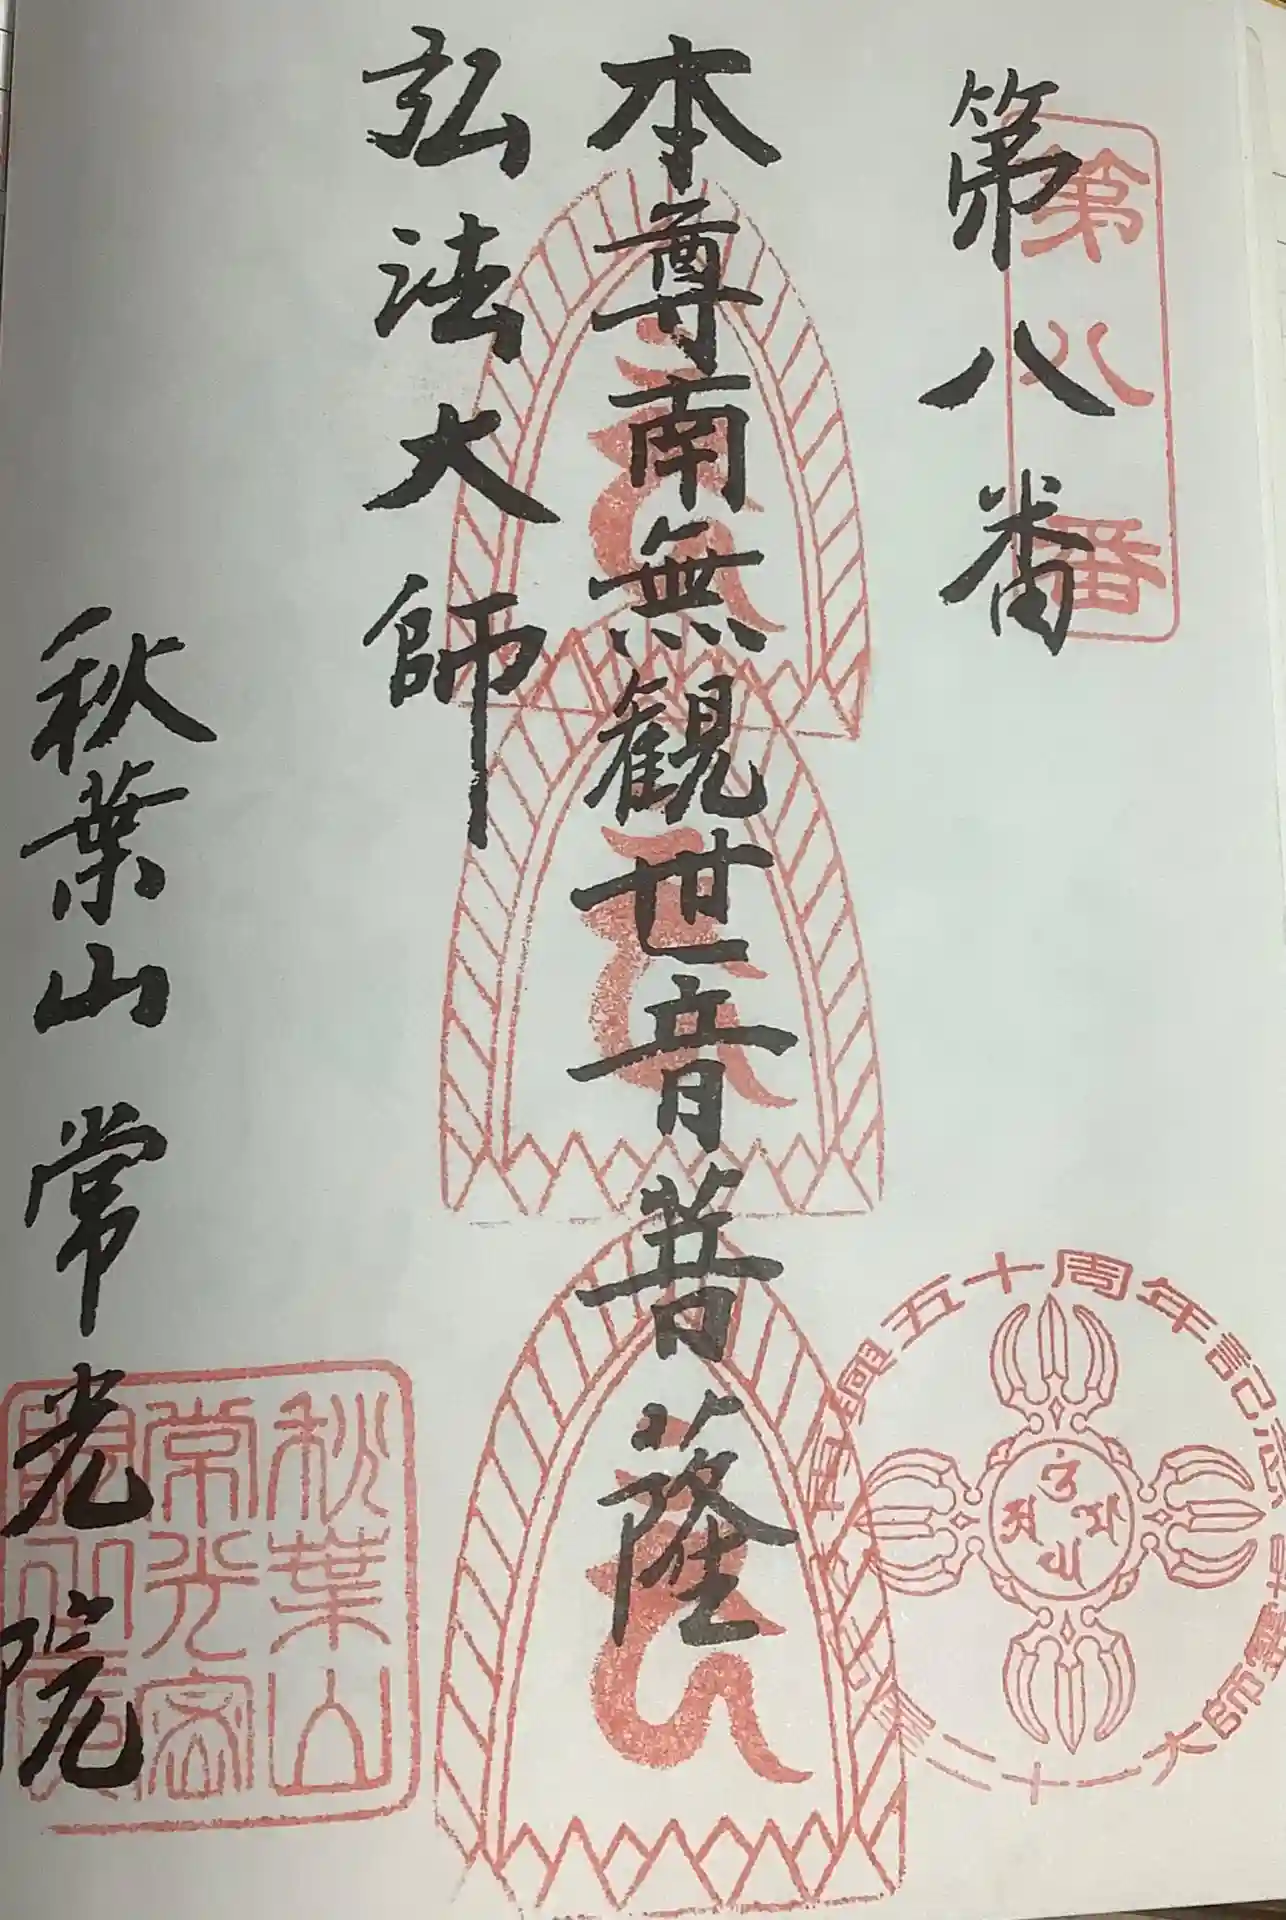 第八番
第八番
本尊南無観世音菩薩
弘法大師
秋葉山常光院
再興五十周年記念
二十一大師霊
秋葉山
常光密